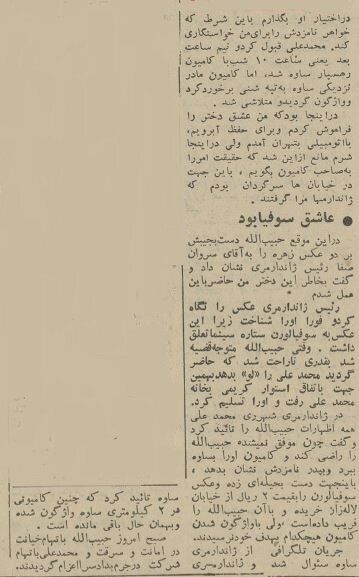 دراختیار او بگذارم باین شرط که
خواهر نامزدش رابرای‌من خواستگاری
کند. محمدعلی قبول کردو نیم ساعت
بعد یعنی ساعت ۱۰ شب‌با کامیون
رهسپار ساوه شد، اما کامیون مادر
نزدیکی ساوه به‌تپه شنی برخوردکرد
وواژگون گردیدو متلاشی شد .
دراینجا بودکه من عشق دختر را
فراموش کردم وبرای حفظ آبرویم،
بااتومبیلی بتهران آمدم ولی دراینجا
شرم مانع ازاین شد که حقیقت امررا
به‌صاحب کامیون بگویم ، باین جهت
در خیابان ها سرگردان بودم که
ژاندارمها مرا گرفتند .
● عاشق سوفیابود
دراین موقع حبیب‌الله دست‌بجیبش
بر دو عکس زهره را به‌آقای سروان
صفا رئیس ژاندارمری نشان داد و
گفت بخاطر این دختر من حاضرباین
عمل شدم
رئیس ژاندارمری عکس را نگاه
کردو فورا اورا شناخت زیرا این
عکس‌به سوفیالورن ستاره سینماتعلق
داشت . وقتی حبیب‌الله متوجه‌قضیه
شد بقدری ناراحت شد که حاضر
گردید محمد علی را «لو» بدهدبهمین
جهت باتفاق استوار کریمی بخانه
محمد علی رفت و اورا تسلیم کرد.
در ژاندارمری شهرری محمد علی
همه اظهارات حبیب‌الله را تائید کرد
وگفت چون موفق نمیشده حبیب‌الله
را راضی کند و کامیون اورا بساوه
ببرد وبپدر نامزدش نشان بدهد ،
باینجهت دست بحیله‌ای زده وعکس
سوفیالورن رابقیمت ۲ ریال از خیابان
لاله‌زار خریده و باآن حبیب‌الله را
فریب داده‌است ،ولی باواژگون شدن
کامیون هیچکدام بهدف خودنرسیدند.
جریان تلگرافی از ژاندارمری
ساوه سئوال شد و ژاندارمری
ساوه تائید کرد که چنین کامیونی
در ۲ کیلومتری ساوه واژگون شده
وبهمان حال باقی مانده است .
صبح امروز حبیب‌الله باتهام‌خیانت
در امانت و سرقت و محمدعلی‌باتهام
شرکت درجرم‌بدادسرااعزام‌گردیدند.